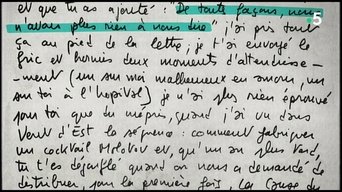 et que tu as ajouté : "De toute façon, nous
n'avons plus rien à nous dire" j'ai pris tout
ça au pied de la lettre, je t'ai envoyé le
fric et hormis deux moments d'attendrisse-
-ment (un sur moi malheureux en amour, un
sur toi à l'hopital) je n'ai plus rien éprouvé
pour toi que du mépris, quand j'ai vu dans
Vent d'Est la séquence : comment fabriquer
un cocktail Molotov et, qu'un an plus tard,
tu t'es dégonflé quand on nous a demandé de
distribuer, pour la première fois, la Cause du
5